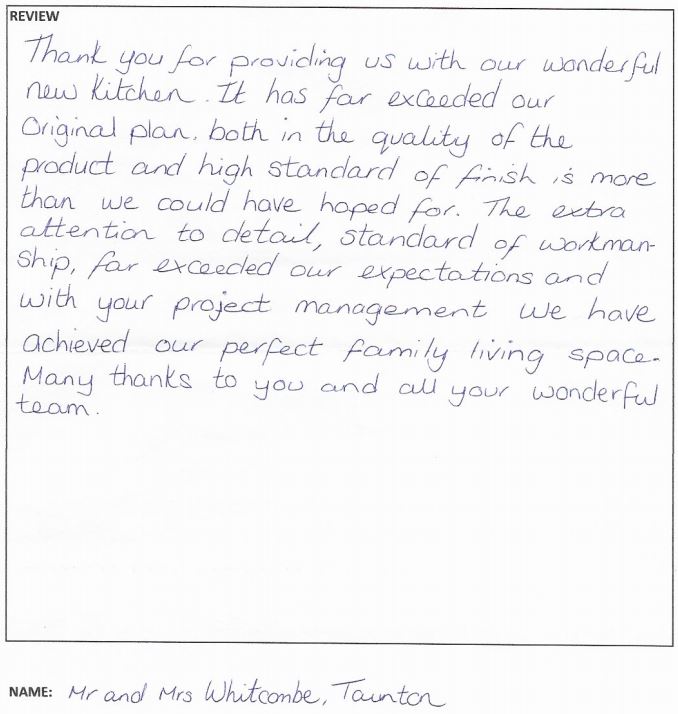 REVIEW
Thank you for providing us with our wonderful
new kitchen. It has far exceeded our
Original plan. both in the quality of the
product and high standard of finish is more
than we could have hoped for. The extra
attention to detail, standard of workman-
ship, far exceeded our expectations and
with your project management we have
achieved our perfect family living space.
Many thanks to you and all your wonderful
team.
NAME: Mr and Mrs Whitcombe, Taunton